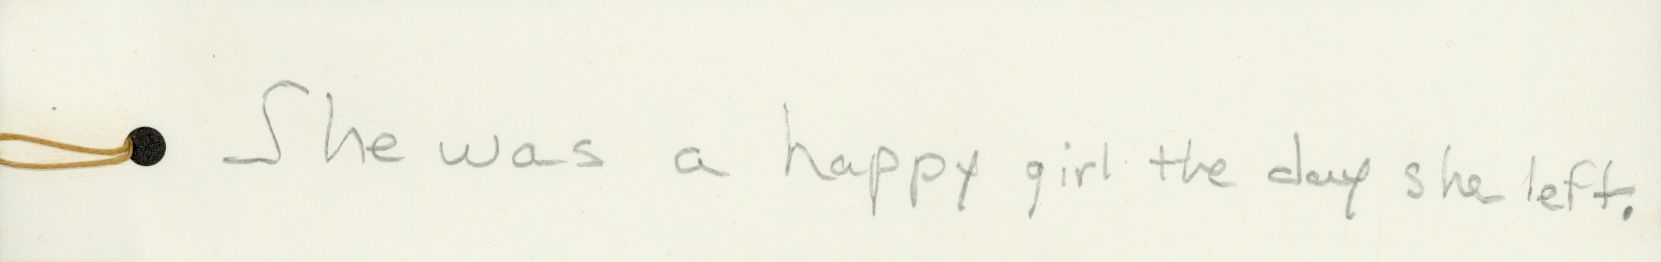 She was a happy girl the day she left.